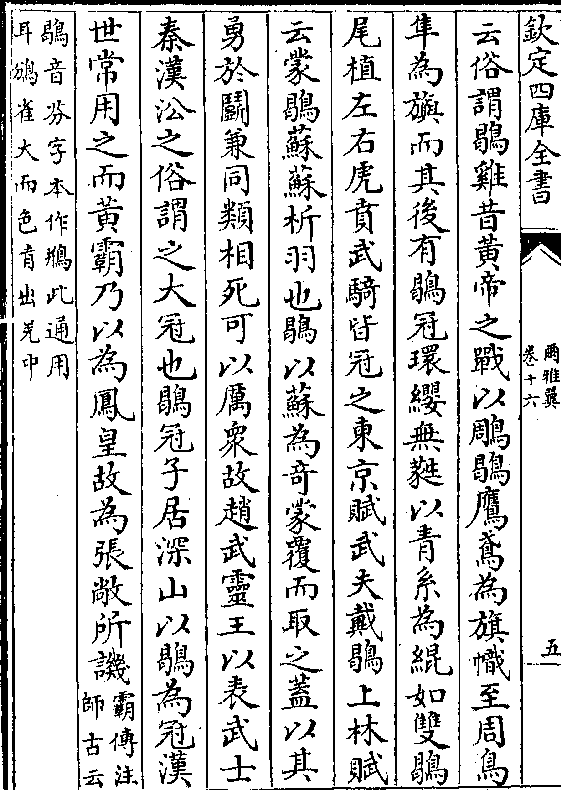 欽定四庫全書
爾雅翼
卷十六
五
云俗謂鶡雞昔黃帝之戰以鵰鶡鷹鳶為旗幟至周鳥
隼為旟而其後有鶡冠環纓無蕤以青系為緄如雙鶡
尾植左右虎賁武騎皆冠之東京賦武夫戴鶡上林賦
云蒙鶡蘇蘇析羽也鶡以蘇為奇蒙覆而取之蓋以其
勇於鬭兼同類相死可以厲衆故趙武靈王以表武士
秦漢㳂之俗謂之大冠也鶡冠子居深山以鶡為冠漢
世常用之而黃霸乃以為鳳皇故為張敞所譏霸傳注
師古云
鶡音芬字本作鳻此通用
耳鳻雀大而色青出羌中